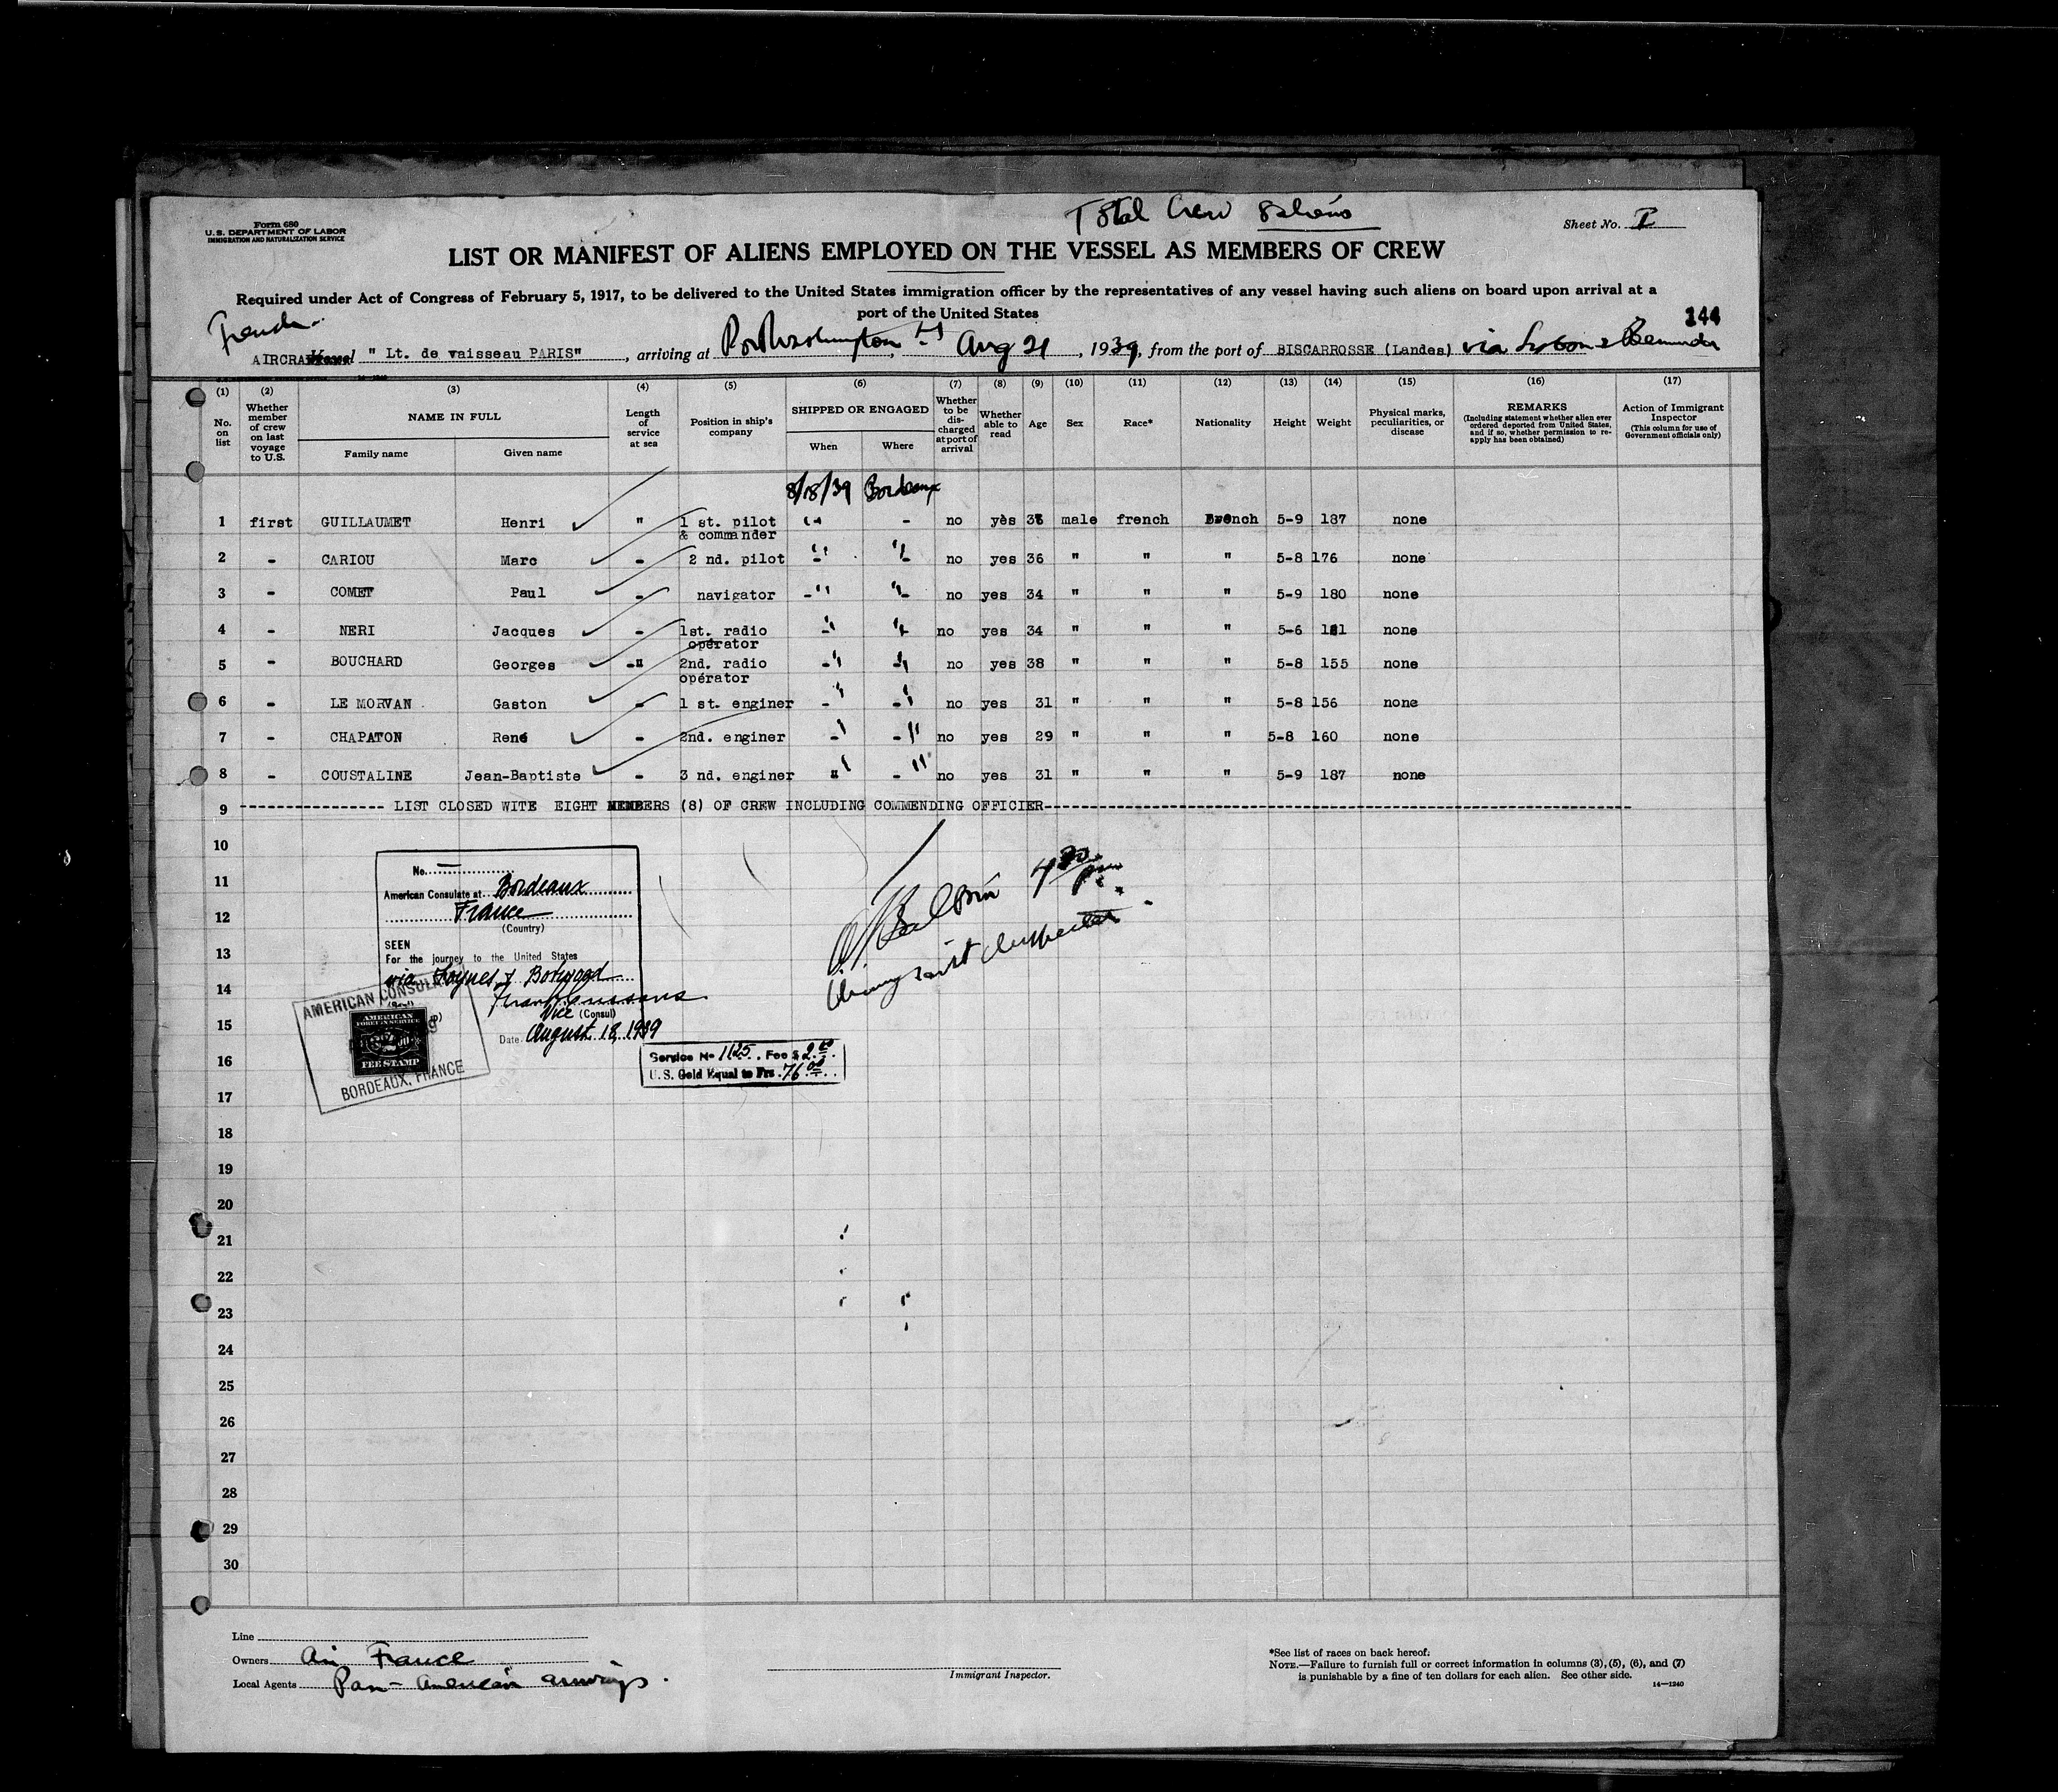 Total Crew 8 aliens
Form 680
U. S. DEPARTMENT OF LABOR
IMMIGRATION AND NATURALIZATION SERVICE
Sheet No. I
LIST OR MANIFEST OF ALIENS EMPLOYED ON THE VESSEL AS MEMBERS OF CREW
Required under Act of Congress of February 5, 1917, to be delivered to the United States immigration officer by the representatives of any vessel having such aliens on board upon arrival at a
port of the United States
144
French
AIRCRA Vessel " Lt. de vaisseau PARIS" , arriving at Port Washington, Aug 21 , 1939, from the port of BISCARROSSE (Landes) via Lisbon & Bermuda
(1) (2) (3) (4) (5) (6) (7) (8) (9) (10) (11) (12) (13) (14) (15) (16) (17)
No. on list
Whether member of crew on last voyage to U.S.
NAME IN FULL
Family name
Given name
Length of service at sea
Position in ship's company
SHIPPED OR ENGAGED
When
Where
Whether to be discharged at port of arrival
Whether able to read
Age
Sex
Race*
Nationality
Height
Weight
Physical marks, peculiarities, or disease
REMARKS
(Including statement whether alien ever ordered deported from United States, and if so, whether permission to reapply has been obtained)
Action of Immigrant Inspector
(This column for use of Government officials only)
8/18/39 Bordeaux
1 first GUILLAUMET Henri " 1 st. pilot no yès 36 male french French 5-9 187 none
& commander
2 - CARIOU Marc - 2 nd. pilot " " no yes 36 " " " 5-8 176 none
3 - COMET Paul - navigator " " no yes 34 " " " 5-9 180 none
4 - NERI Jacques - 1st. radio " " no yes 34 " " " 5-6 none
opérator
5 - BOUCHARD Georges - 2nd. radio " " no yes 38 " " " 5-8 155 none
opérator
6 - LE MORVAN Gaston - 1 st. enginer " " no yes 31 " " " 5-8 156 none
7 - CHAPATON René - 2nd. enginer " " no yes 29 " " " 5-8 160 none
8 - COUSTALINE Jean-Baptiste - 3 nd. enginer " " no yes 31 " " " 5-9 187 none
9 ---------------- LIST CLOSED WITE EIGHT MEMBERS (8) OF CREW INCLUDING COMMENDING OFFICIER----------------
10
11
12
13
14
15
16
17
18
19
20
21
22
23
24
25
26
27
28
29
30
No.
American Consulate at Bordeaux
France
(Country)
SEEN
For the journey to the United States
via Foynes & Botwood
Vice (Consul)
Date August 18, 1939
AMERICAN CONSULATE
AMERICAN
FOREIGN SERVICE
FEE STAMP
BORDEAUX, FRANCE
Service No 1125. Fee $ 2.00
U. S. Gold Equal to Frs. 76.00
Baldwin 4 30 pm
Immigrant Inspector
Line
Owners Air France
Local Agents Pan-American airways.
Immigrant Inspector.
*See list of races on back hereof.
NOTE.—Failure to furnish full or correct information in columns (3), (5), (6), and (7)
is punishable by a fine of ten dollars for each alien. See other side.
14—1240